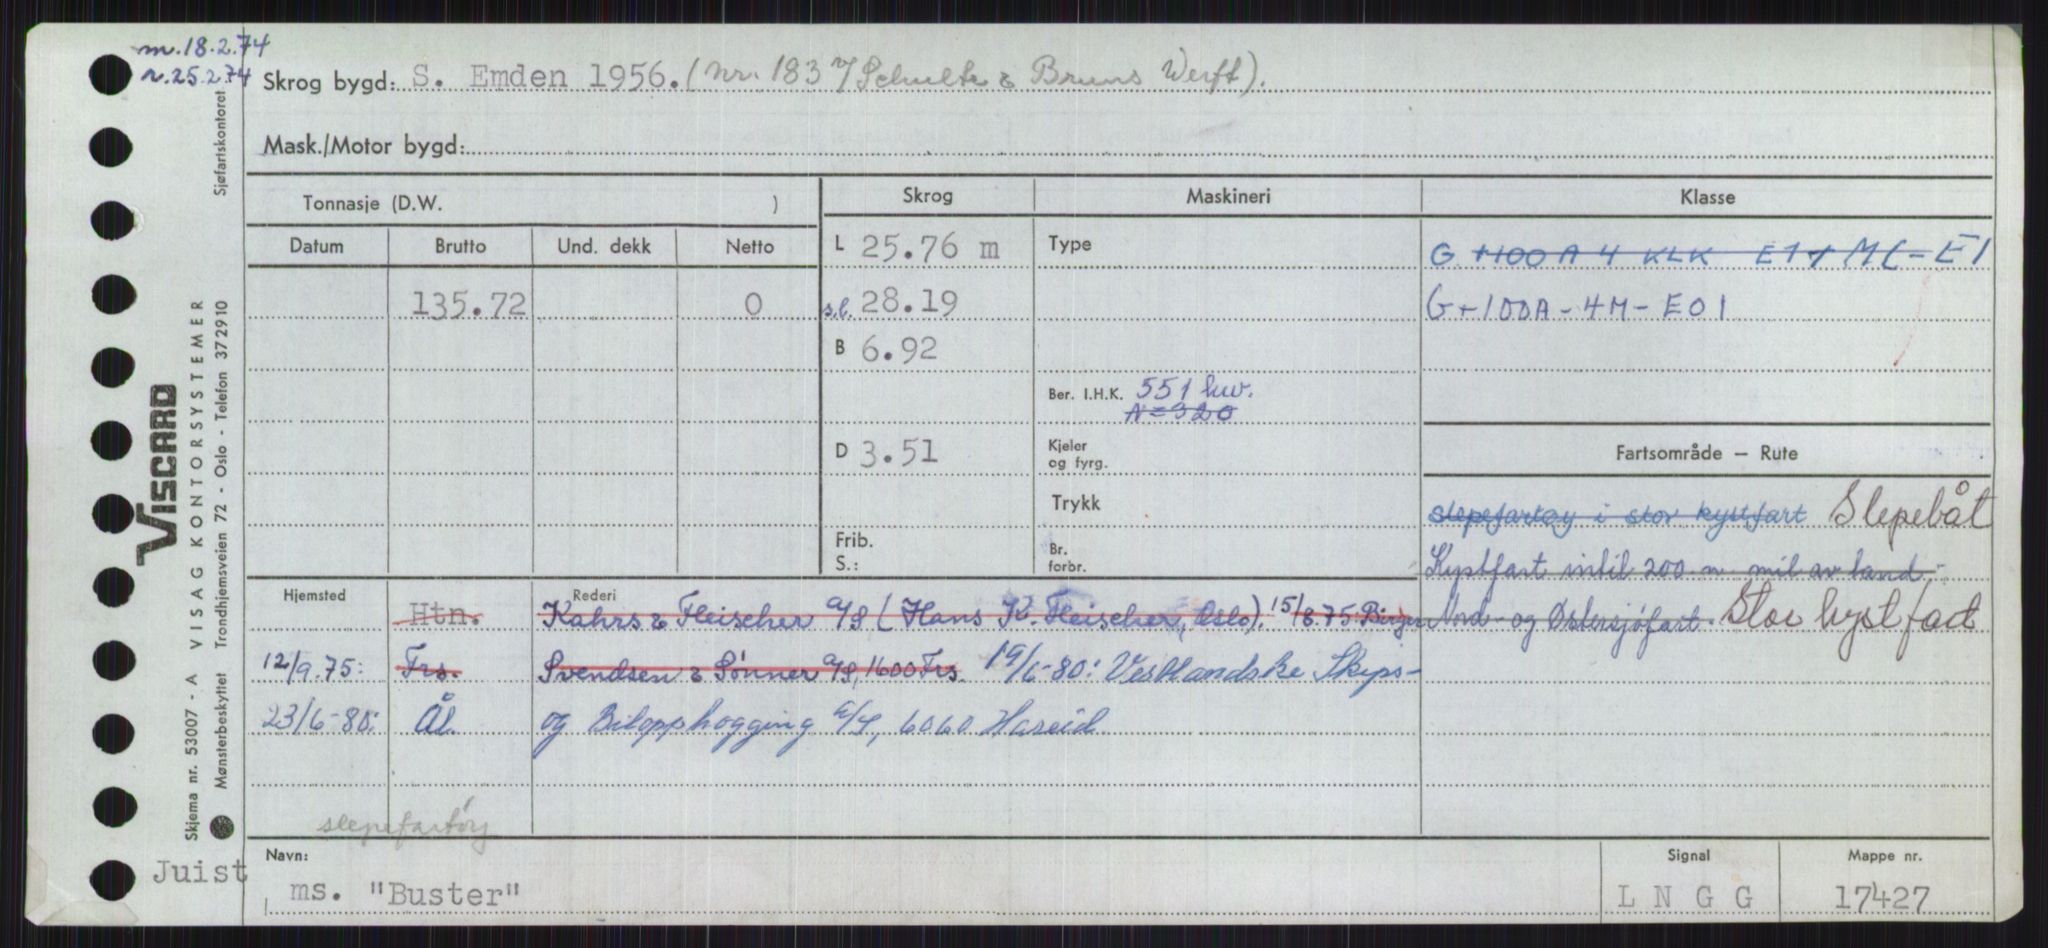 m.18.2.74
r.25.2.74
Skrog bygd: S. Emden 1956. (Nr. 183 v/Schulte & Bruns Werft).
Mask./Motor bygd:
Tonnasje (D.W. )
Skrog
Maskineri
Klasse
Datum Brutto Und. dekk Netto
L 25.76 m
Type
G +100 A 4 KLK E1 + MC-E1
135.72 0
s.l. 28.19
G+100A-4M-E01
B 6.92
Ber. I.H.K. 551 kw.
N=320
D 3.51
Kjeler
og fyrg.
Fartsområde — Rute
Trykk
slepefartøy i stor kystfart Slepebåt
Frib.
S.:
Br.
forbr.
Kystfart intil 200 n. mil av land.
Nord- og Østersjøfart. Stor kystfart
Hjemsted
Rederi
Htn. Kahrs & Fleischer a/s (Hans K. Fleischer, Oslo). 15/8.75 Birger
12/9.75: Frs. Svendsen & Sønner a/s, 1600 Frs. 19/6-80: Vestlandske Skips-
23/6-80: Ål. og Bilopphogging a/s, 6060 Hareid
slepefartøy
Navn:
Juist
ms. "Buster"
Signal
L N G G
Mappe nr.
17427
Sjøfartskontoret
VISCARD
A VISAG KONTORSYSTEMER
Trondhjemsveien 72 - Oslo - Telefon 372910
Skjema nr. 53007 - A
Mønsterbeskyttet